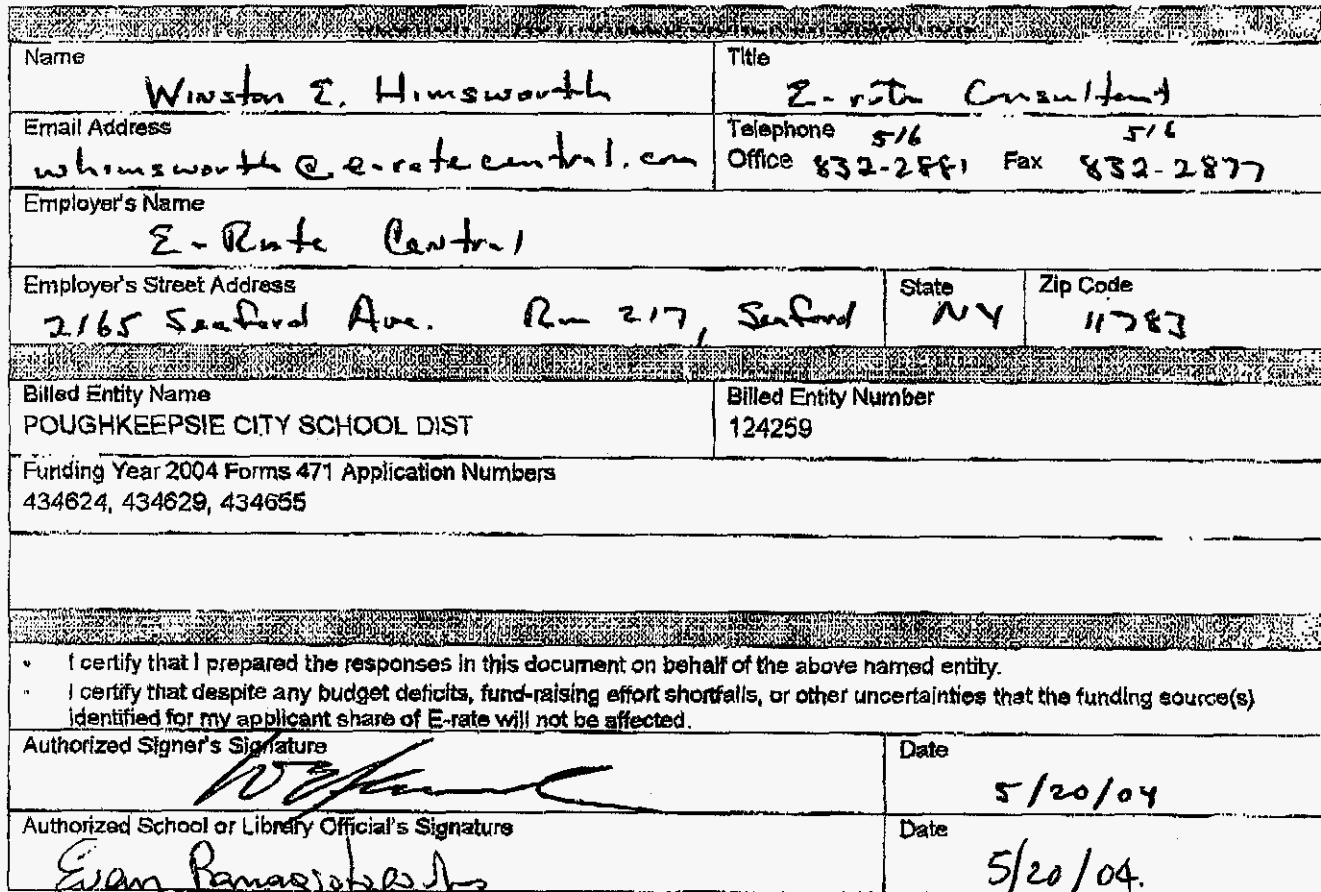 Name
Title
Winston E. Himsworth
E-rate Consultant
Email Address
whimsworth@e-ratecentral.com
Telephone 516 516
Office 832-2881 Fax 832-2877
Employer's Name
E-Rate Central
Employer's Street Address
State
Zip Code
2165 Seaford Ave. Rm 217, Seaford
NY
11783
Billed Entity Name
Billed Entity Number
POUGHKEEPSIE CITY SCHOOL DIST
124259
Funding Year 2004 Forms 471 Application Numbers
434624, 434629, 434655
I certify that I prepared the responses in this document on behalf of the above named entity.
I certify that despite any budget deficits, fund-raising effort shortfalls, or other uncertainties that the funding source(s)
identified for my applicant share of E-rate will not be affected.
Authorized Signer's Signature
Date
5/20/04
Authorized School or Library Official's Signature
Date
Evan
5/20/04.